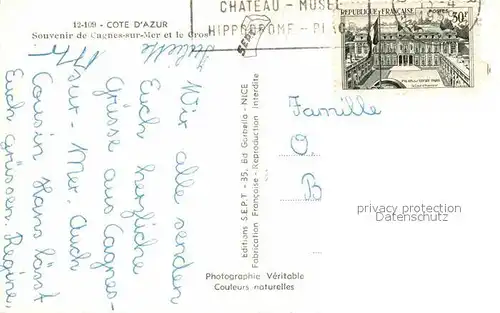 12-109 - COTE D'AZUR
Souvenir de Cagnes-sur-Mer et le Cros
CHATEAU - MUSEE
HIPPODROME - PLAGE
REPUBLIQUE FRANÇAISE
POSTES
30F
Wir alle senden
Euch herzliche
Grüsse aus Cagnes-
sur-Mer. Auch
Cousin Hans lässt
Euch grüssen. Regine,
Editions S.E.P.T - 35, Bd Gorbella - NICE
Fabrication Française - Reproduction Interdite
Photographie Véritable
Couleurs naturelles
Famille
O.
B
privacy protection
Datenschutz